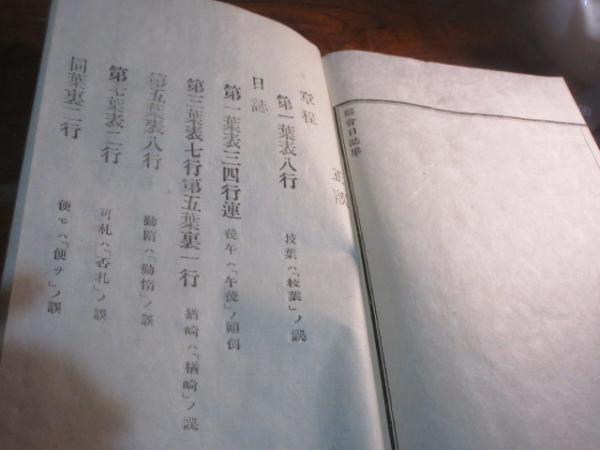 縣會日誌畢
正誤
章程
第一葉表八行 技葉ハ「枝葉」ノ誤
日誌
第一葉表三四行連 後午ハ「午後」ノ顛倒
第三葉表七行第五葉裏一行 猶崎ハ「楢崎」ノ誤
第五葉表八行 勤隋ハ「勤惰」ノ誤
第七葉表二行 可札ハ「否札」ノ誤
同葉裏二行 使モハ「使ヲ」ノ誤